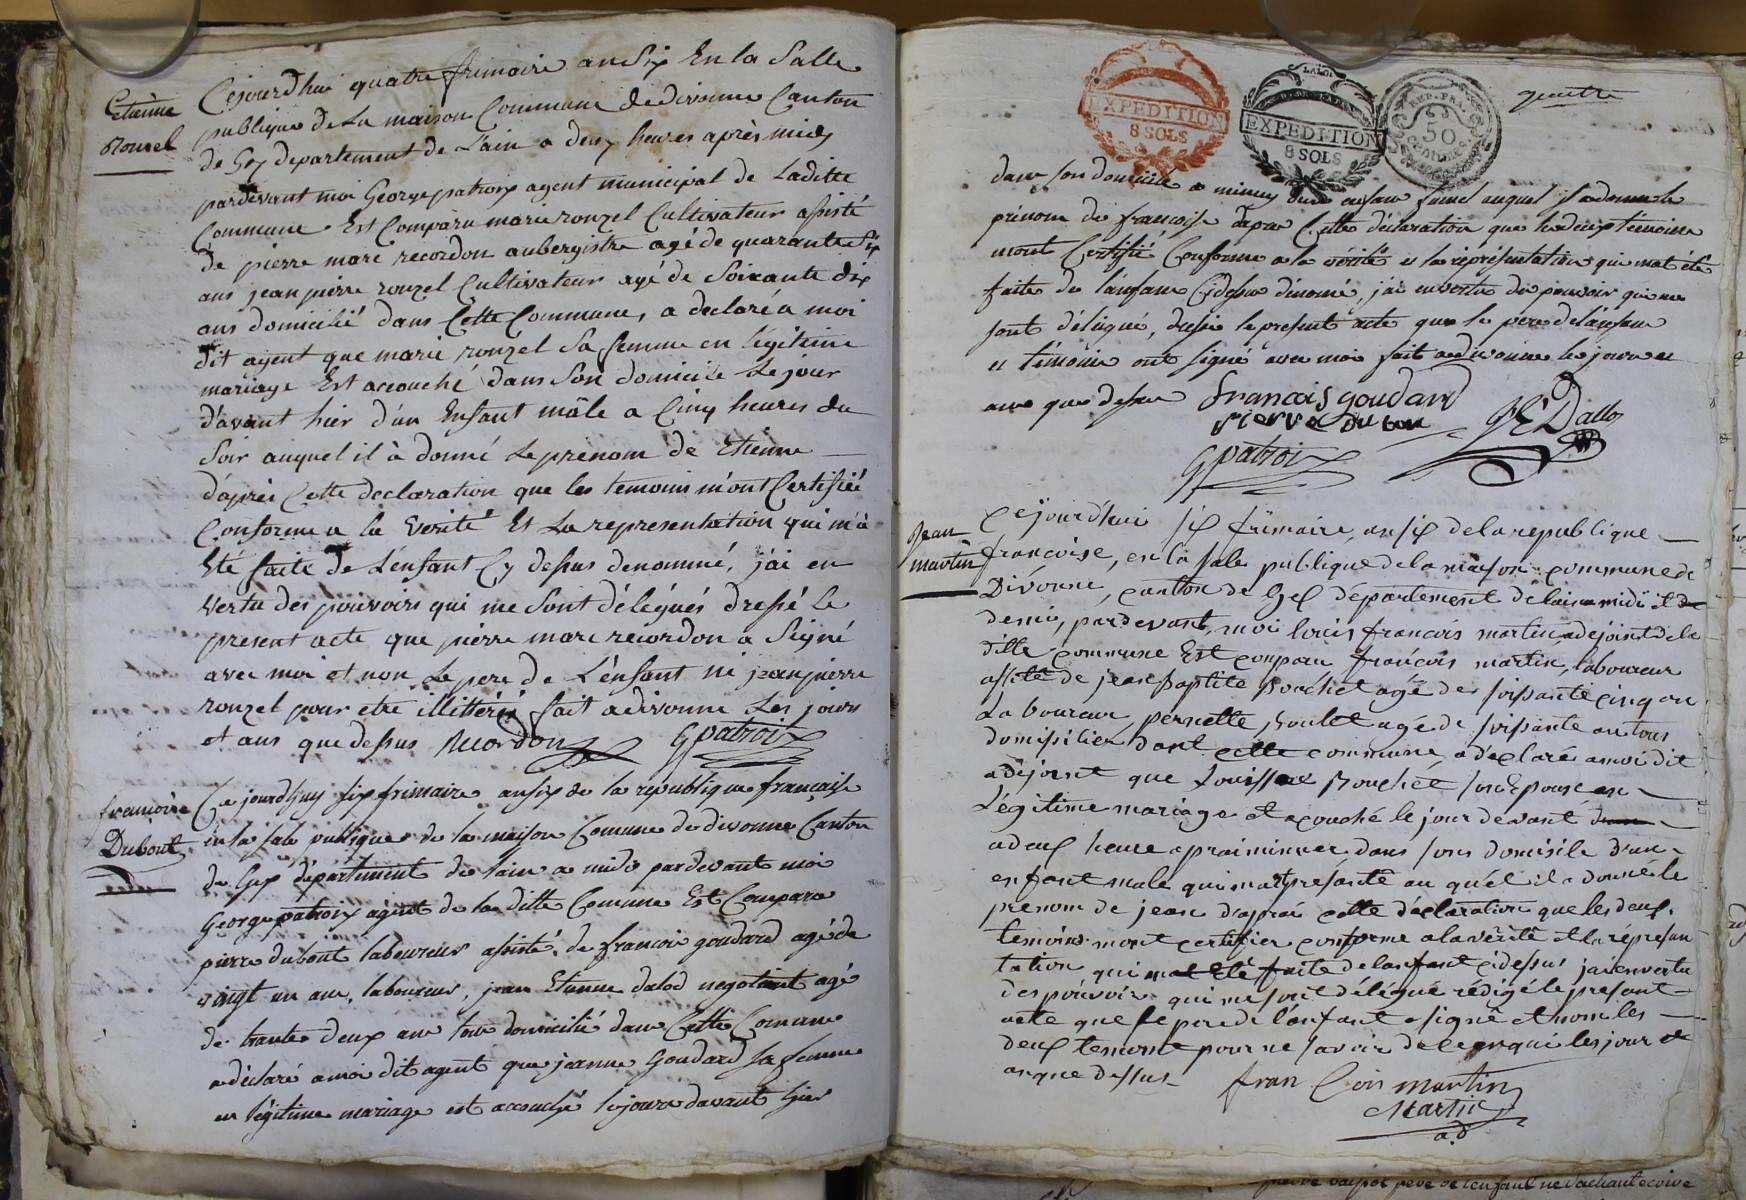 Etiènne
Rouzel
Cejourd'hui quatre frimaire an Six En la Salle
publique De La maison Commune de divonne Canton
de Gex departement de L'ain a deux heures après midy
pardevant moi George patroix agent municipal de Laditte
Commune Est Comparu marie rouzel Cultivateur assisté
de pierre marc recordon aubergistre agé de quarante Six
ans jean pierre rouzel Cultivateur agé de Soixante dix
ans domicilié dans Cette Commune, a declaré a moi
dit agent que marie rouzel Sa femme en légitime
mariage Est accouché dans Son domicile Le jour
d'avant hier d'un Enfant mâle a Cinq heures du
Soir auquel il à donné Le prénom de Etienne
d'après Cette declaration que les temoins m'ont Certifiée
Conforme a la Verité Et La representation qui m'à
Eté faite de L'enfant Cy dessus denommé, j'ai en
Vertu des pouvoirs qui me Sont délégués dressé Le
present acte que pierre marc recordon a Signé
avec moi et non Le pere de L'enfant ni jean pierre
rouzel pour etre illittéré fait a divonne Les jours
et ans que dessus Recordon GPatroix
francoise
Dubout
Ce jourdhuy six frimaire an six de la republique française
en la sale publique de la maison Comune de divonne Canton
de Gex département de l'ain a midi pardevant moi
George patroix agent de la ditte Comune Est Comparu
pierre dubout laboureur assisté de francois goudard agé de
vingt un ans, laboureur, jean Etienne dalod negotiant agé
de trante deux ans tous domicilié dans Cette Comune
a déclaré a moi dit agent que jeanne Goudard sa femme
en légitime mariage est accouché le jour davant hier
EXPEDITION
8 SOLS
LA LOI
EXPEDITION
8 SOLS
REP. FRA.
50
centimes
dans son domicile a minuy d'un enfant auquel il a donné le
prénom de francoise dapre Cette déclaration que les deux témoins
mont Certifié Conforme a la vérité et la représentation qui mat été
faite de l'anfant Cidessu dénomé, jai en vertu de pouvoir qui me
sont délégué, dressé le present acte que le pere de lanfant
et témoins ont signé avec moi fait a divonne les jours et
ans que dessu francois goudard
pierre Dubout JE Dallod
GPatroix
Jean
martin
Cejourd'hui six frimaire, an six de la republique
francoise, en la sale publique de la maison commune de
Divonne, canton de Gex département de lain a midi et
demi, pardevant, moi louis francois martin adejoint de la
ditte commune Est conparu francois martin, laboureur
assité de jean baptite Bouchet agé de soissante cinq an
La boureur, pernette Boulet agé de soissante an tous
domissilier dant cette commune, a déclaré a moi dit
adejoint que Bouchet son Epouse en
Légitime mariage et acouché le jour de vant
a deux heure dans son domisile d'un
enfant male qui mat présanté au quél il a donné le
prenom de jean d'aprai cette déclaration que les deux
temoins mont certifier conforme a la vérité et la répresan
tation qui mat Eté faite de lanfant cidessus jai en vertu
des pouvoir qui me sont délégué rédigé le présant
acte que le pere de l'anfant a signé et non les
deux temoins pour ne savoir de ce anqui les jour et
an que dessus fran Cois martin
Martin
a.d